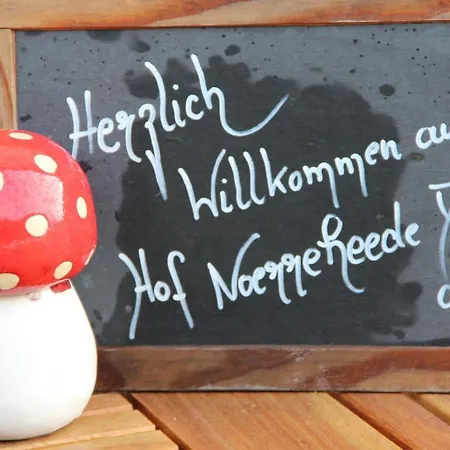 Herzlich
Willkommen au
Hof Noerreheede